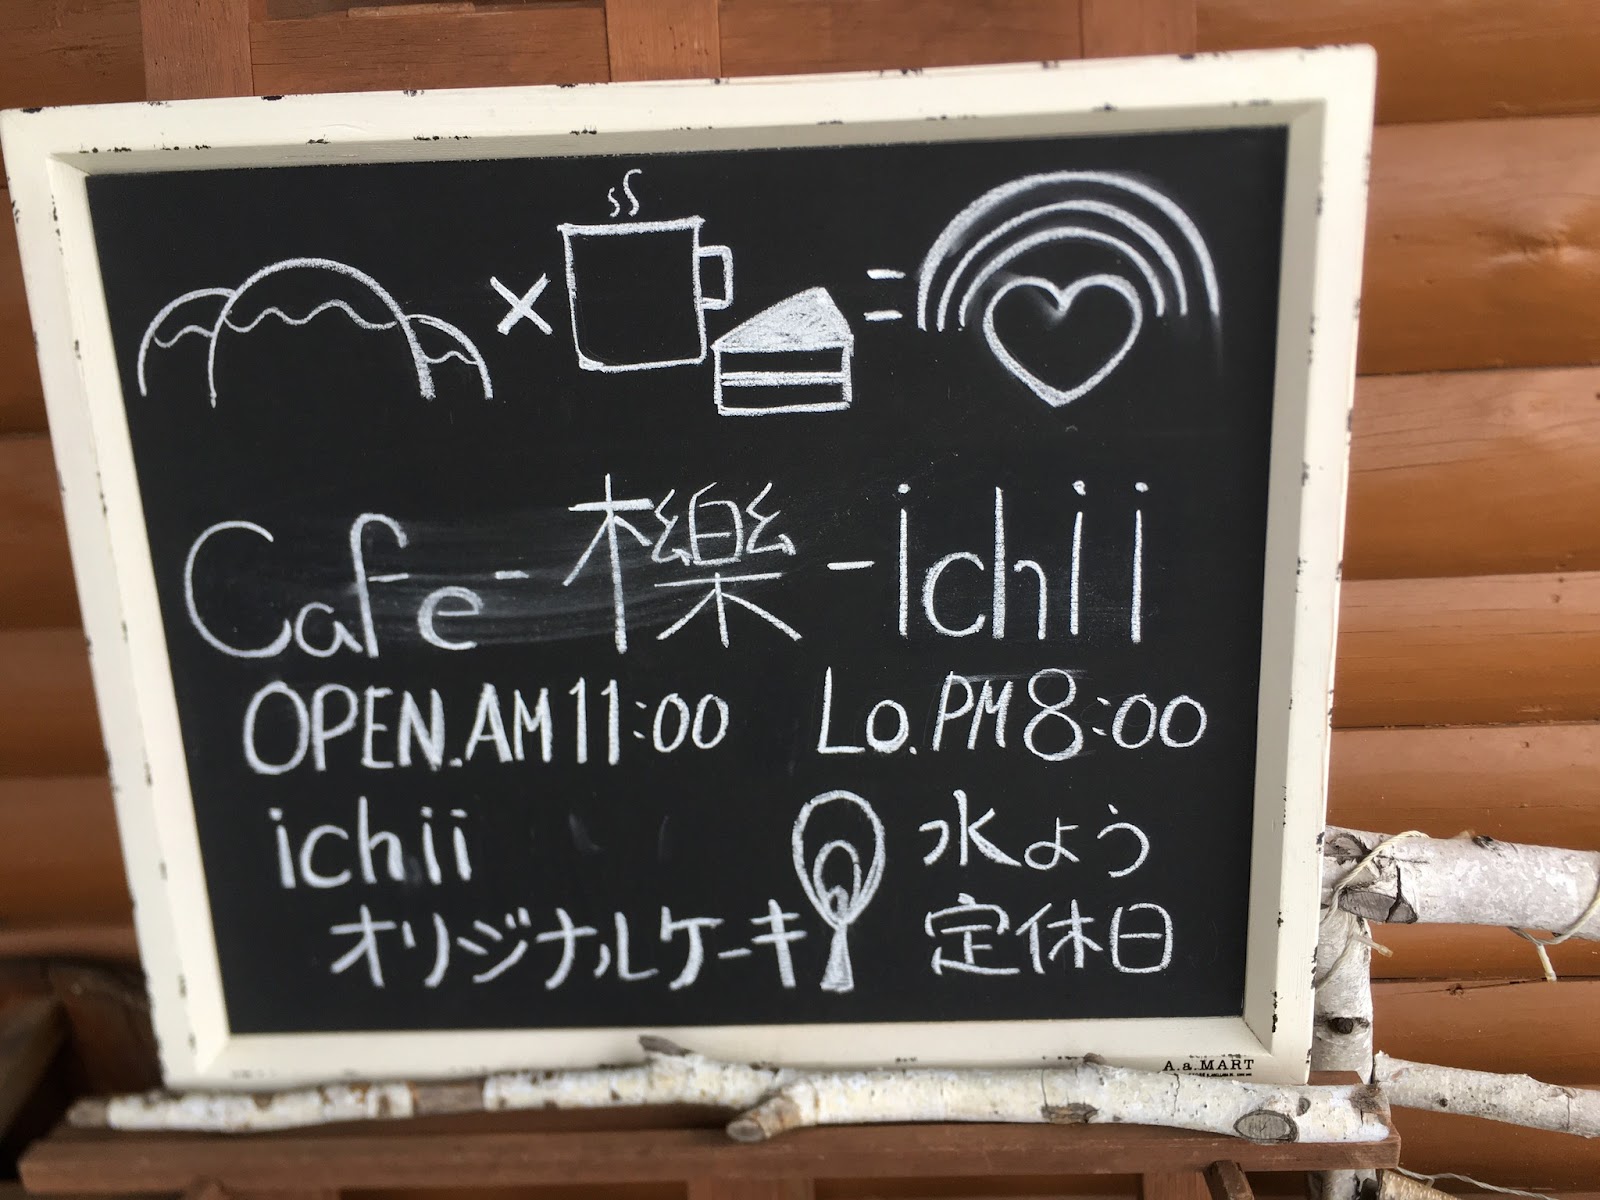 Cafe-櫟-ichii
OPEN.AM11:00 Lo.PM8:00
ichii
オリジナルケーキ
水よう
定休日
A.a.MART